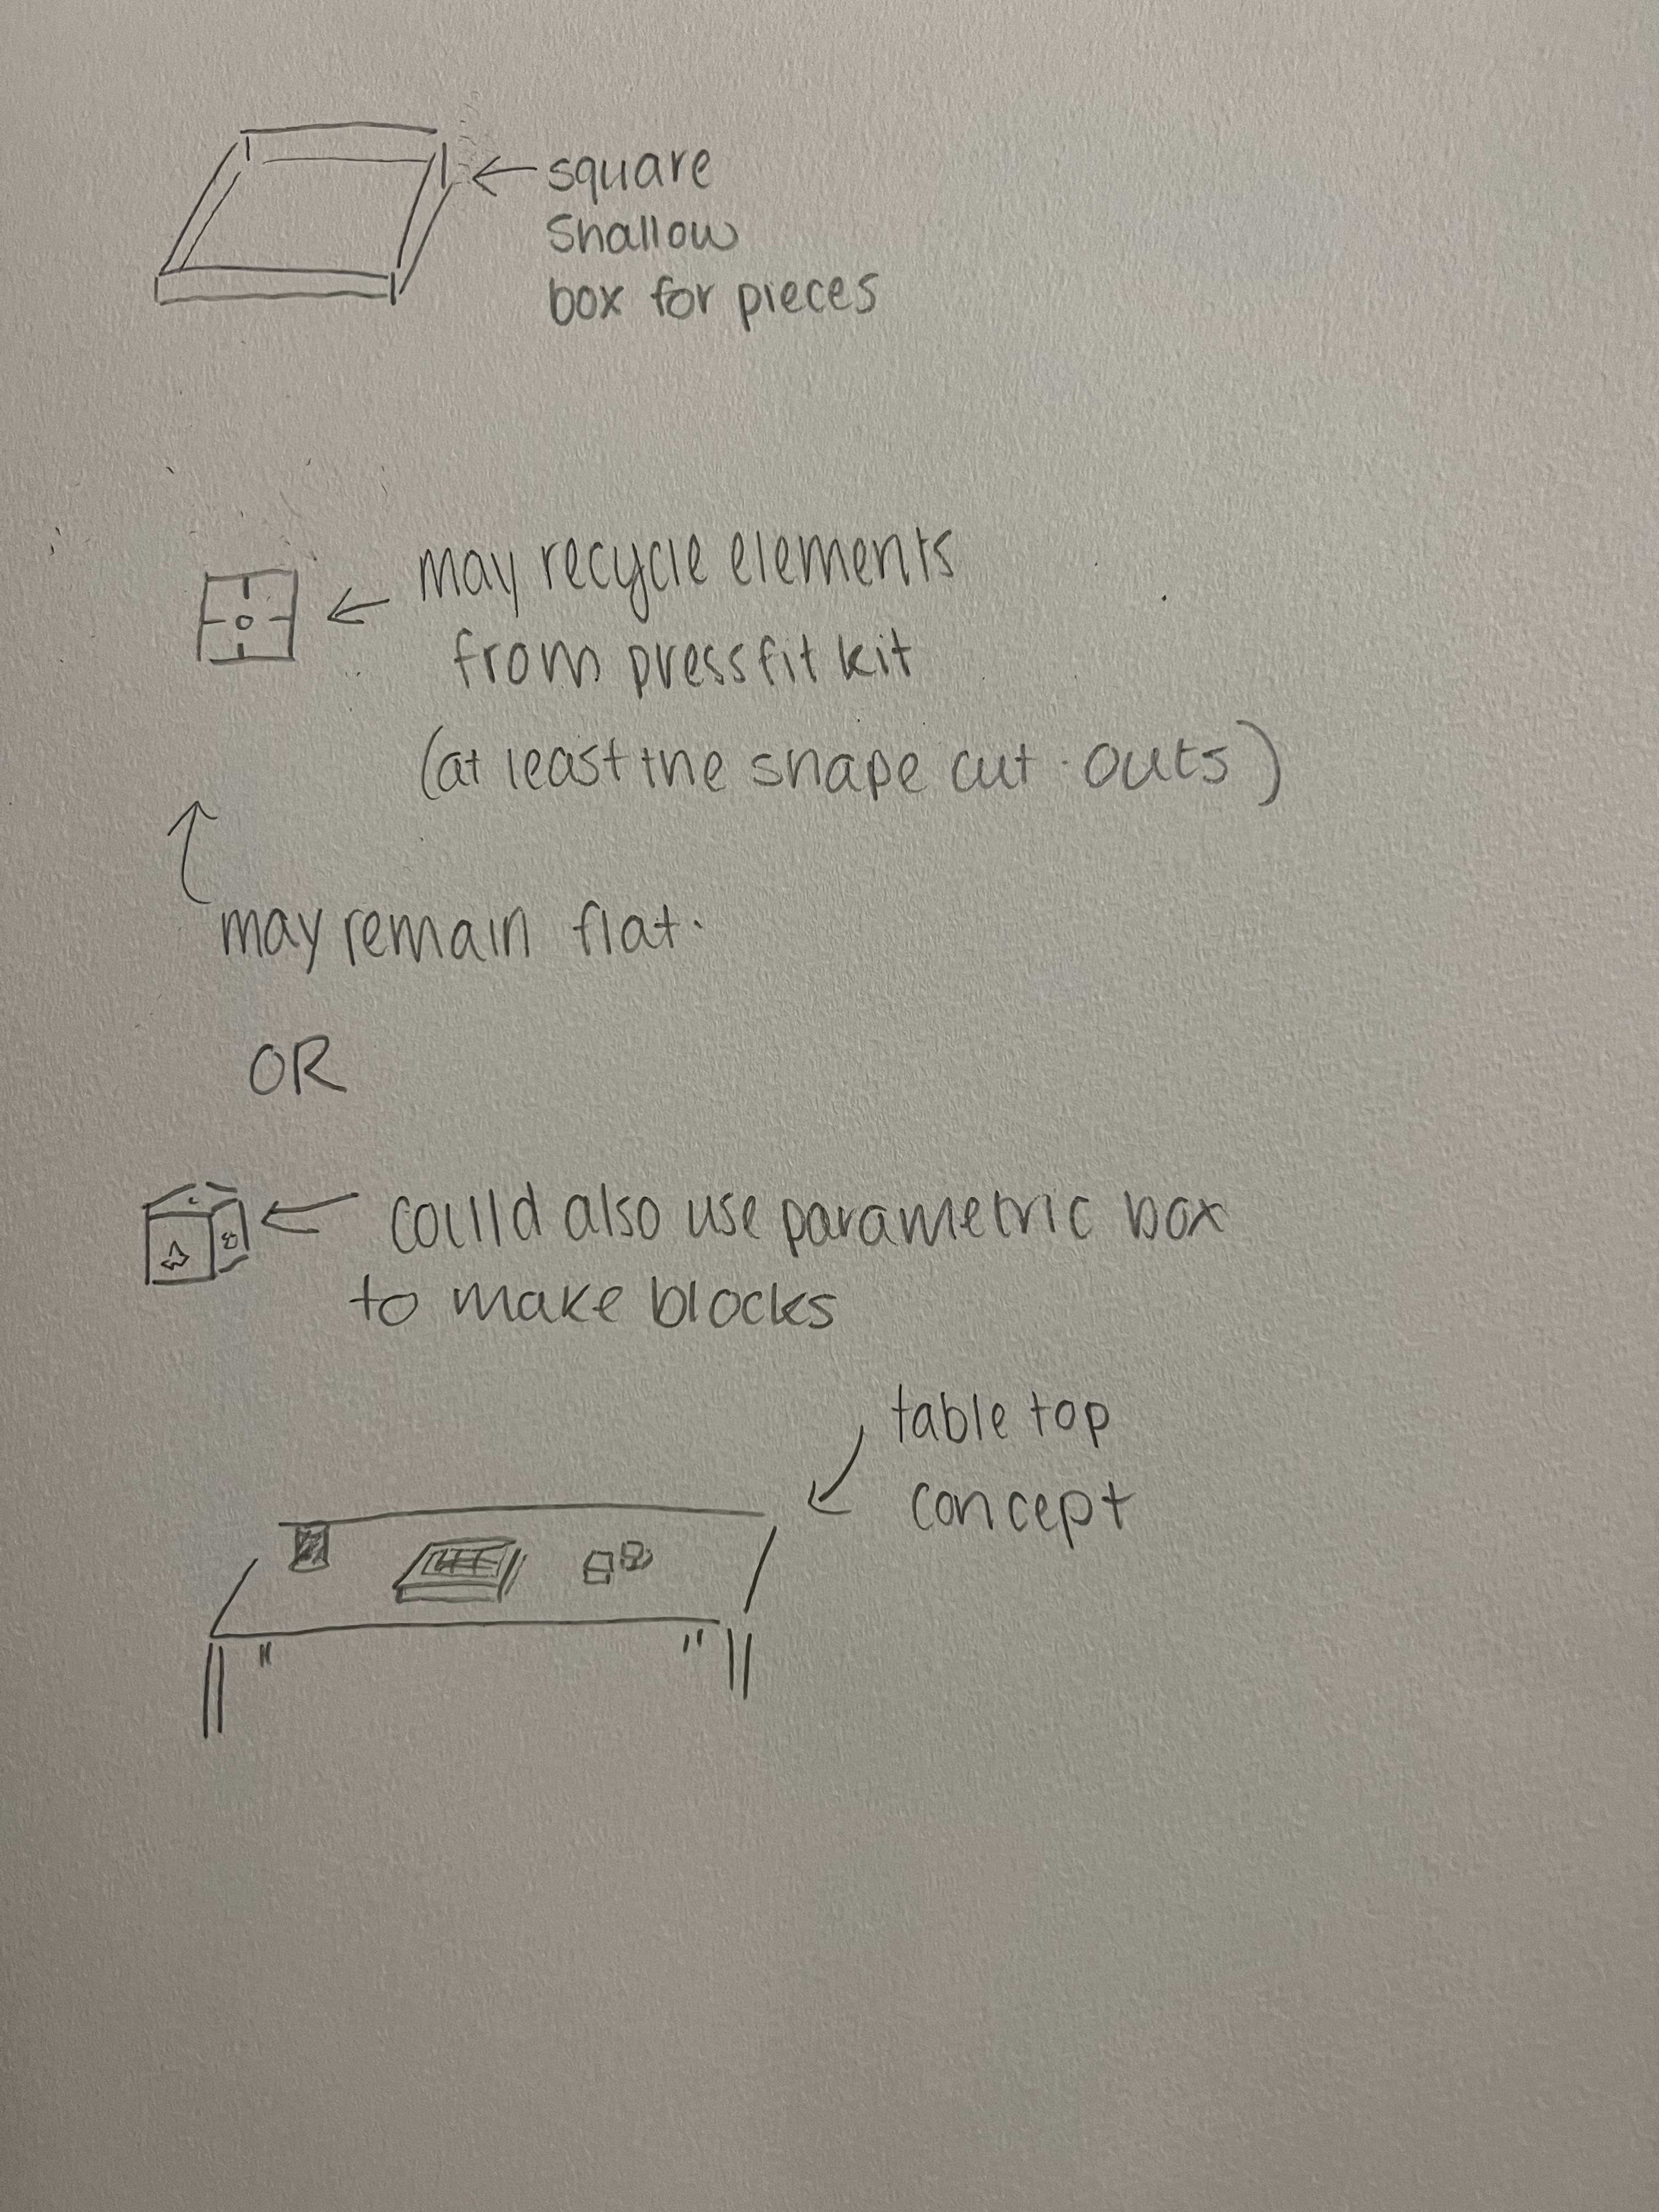 square
Shallow
box for pieces
may recycle elements
from pressfit kit
(at least the shape cut outs)
may remain flat.
OR
could also use parametric box
to make blocks
table top
concept